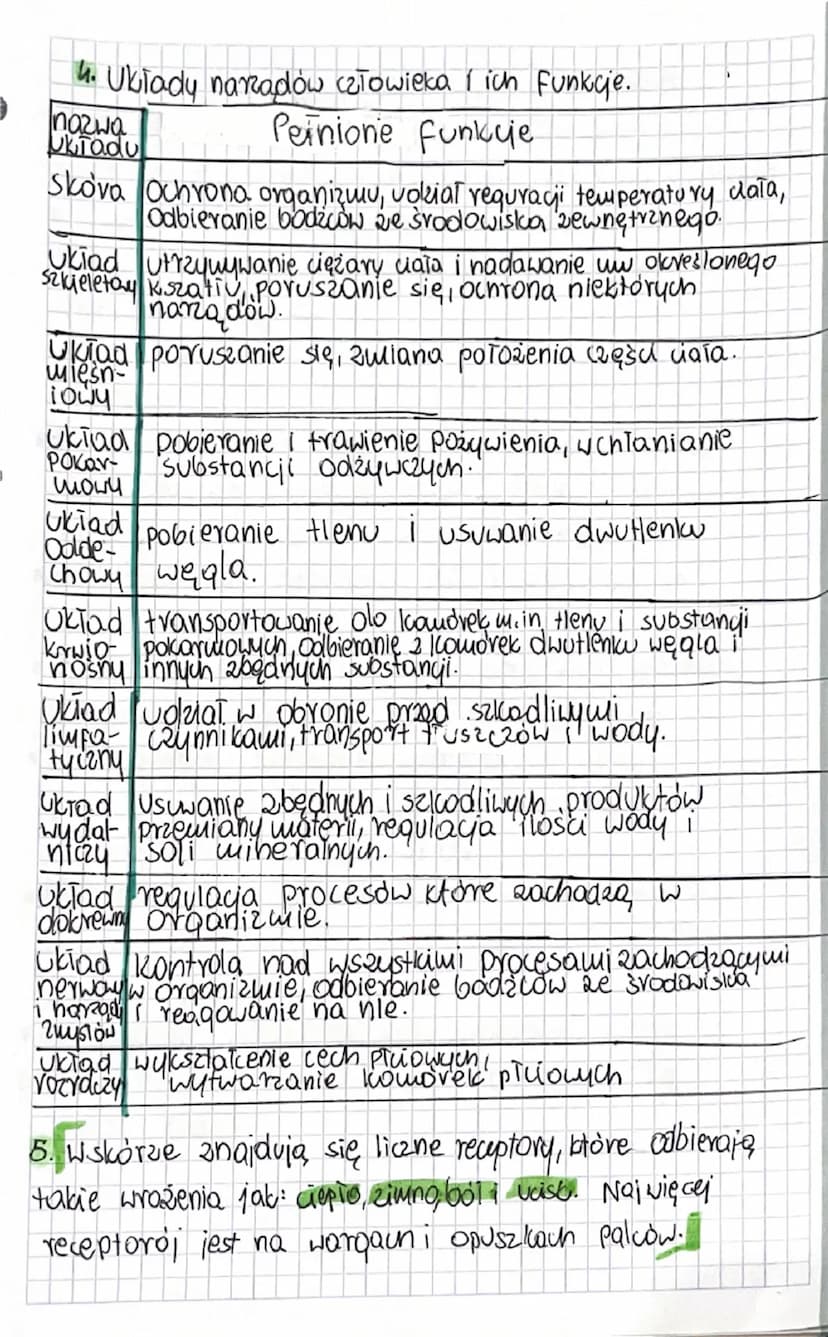 4. Układy narządów człowieka i ich funkcje.
nazwa układu
Pełnione funkcje
Skóra
Ochrona organizmu, udział reguracji temperatury ciała,
Odbieranie bodźców ze środowiska zewnętrznego.
układ szkieletowy
utrzymywanie ciężaru ciała i nadawanie mu określonego
kształtu, poruszanie się, ochrona niektórych
narządów.
układ mięśn-
iowy
poruszanie się, zmiana położenia części ciała.
układ pokar-
mowy
pobieranie i trawienie pożywienia, wchłanianie
substancji odżywczych.
układ Odde-
chowy
pobieranie tlenu i usuwanie dwutlenku
węgla.
układ krwio-
nośny
transportowanie do komórek m.in. tlenu i substancji
pokarmowych, odbieranie z komórek dwutlenku węgla i
innych zbędnych substancji.
Układ limfa-
tyczny
udział w obronie przed szkodliwymi
czynnikami, transport tłuszczów i wody.
układ wydal-
niczy
Usuwanie zbędnych i szkodliwych produktów
przemiany materii, regulacja ilości wody i
soli mineralnych.
układ dokrewny
regulacja procesów które zachodzą w
organizmie.
układ nerwowy
i narządy
zmysłów
kontrola nad wszystkimi procesami zachodzącymi
w organizmie, odbieranie bodźców ze środowiska
i reagowanie na nie.
układ rozrodczy
wykształcenie cech płciowych,
wytwarzanie komórek płciowych
5. W skórze znajdują się liczne receptory, które odbierają
takie wrażenia jak: ciepło, zimno, ból i ucisk. Najwięcej
receptorój jest na wargach i opuszkach palców.